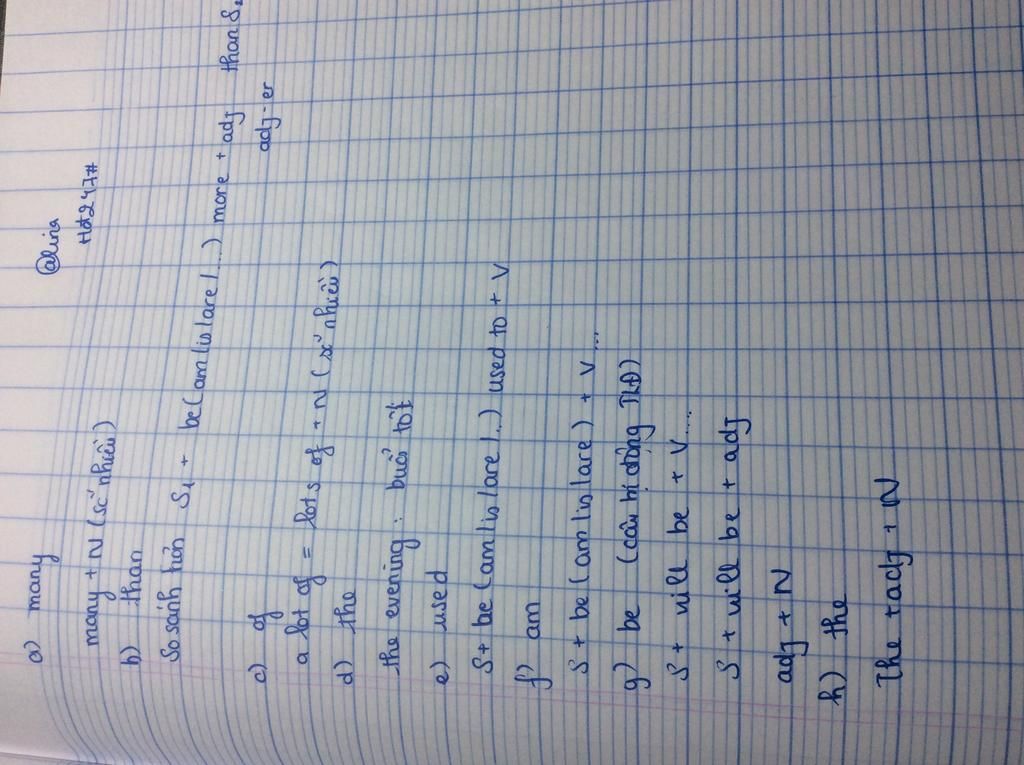 @lina
Hđ247#
a) many
many + N (số nhiều)
b) than
So sánh hơn S1 + be (am/is/are/...) more + adj than S2
adj-er
c) of
a lot of = lots of + N (số nhiều)
d) the
the evening: buổi tối
e) used
S + be (am/is/are/...) used to + V
f) am
S + be (am/is/are) + V....
g) be (câu bị động TLĐ)
S + will be + V.....
S + will be + adj
adj + N
h) the
The + adj + N